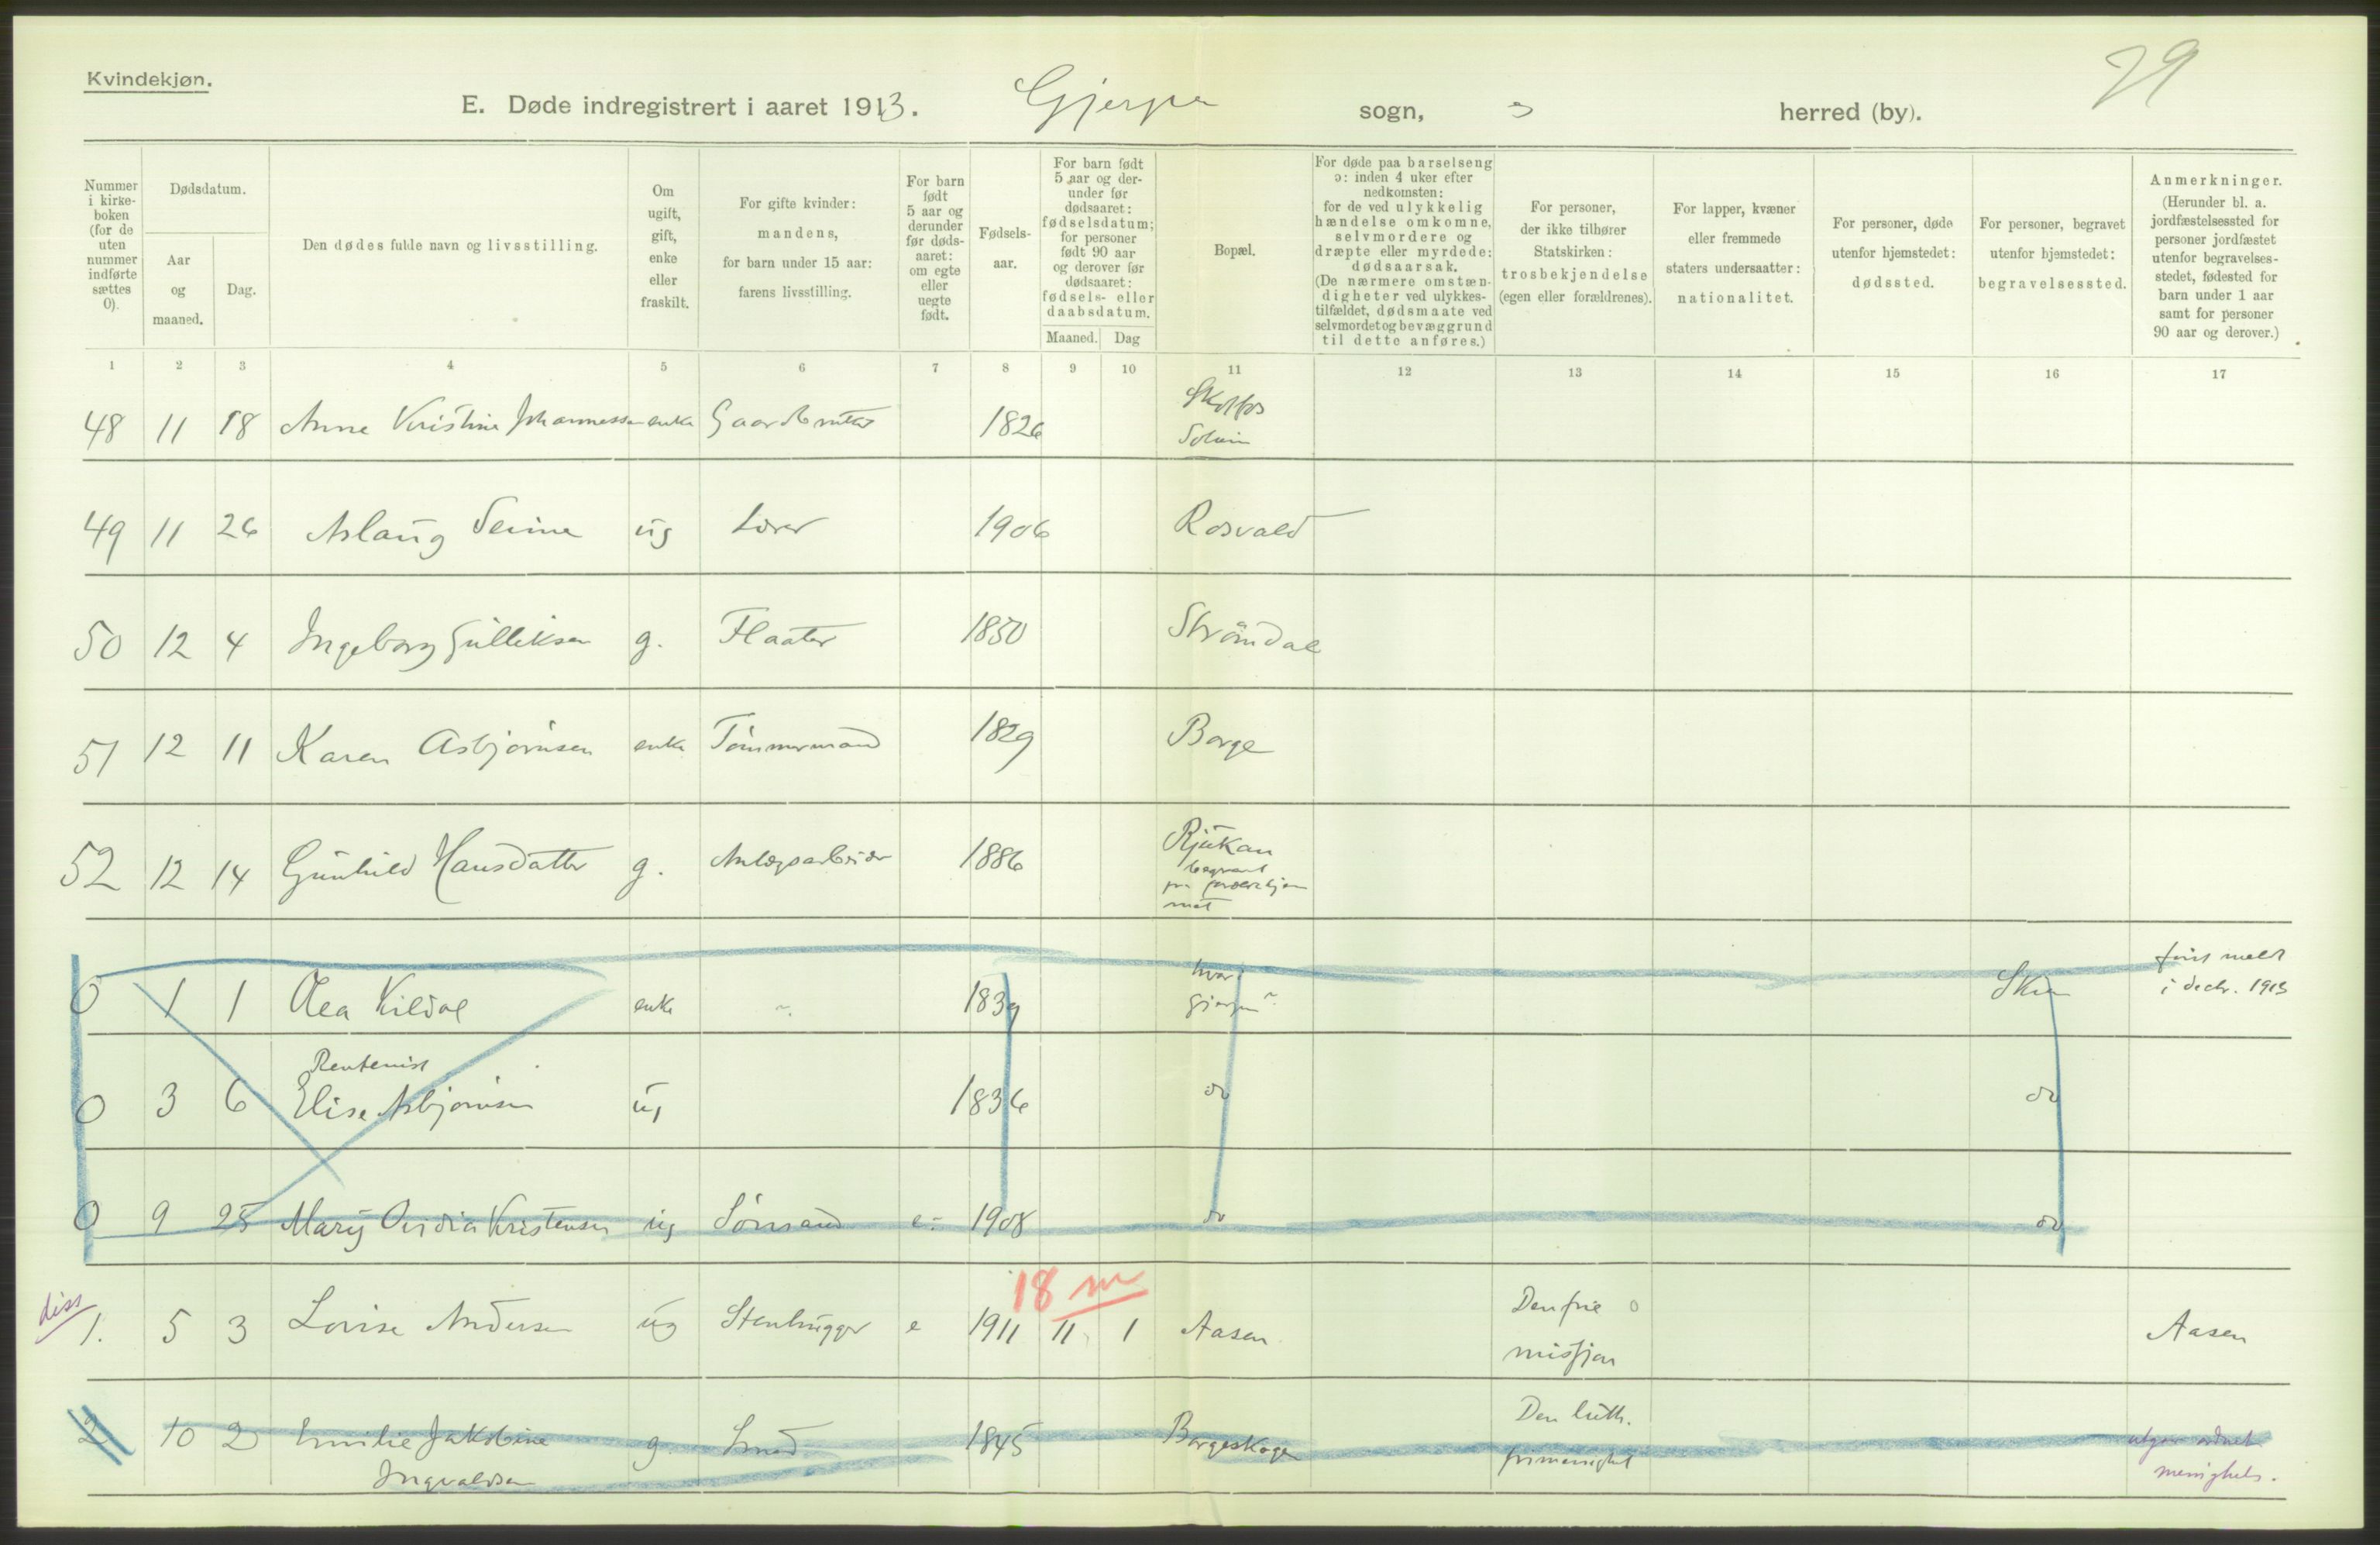 Kvindekjøn.
29
E. Døde indregistrert i aaret 1913. Gjerpen sogn, herred (by).
Nummer i kirke-boken (for de uten nummer indførte sættes 0).
Dødsdatum.
Aar og maaned.
Dag.
Den dødes fulde navn og livsstilling.
Om ugift, gift, enke eller fraskilt.
For gifte kvinder: mandens, for barn under 15 aar: farens livsstilling.
For barn født 5 aar og derunder før døds-aaret: om egte eller uegte født.
Fødsels-aar.
For barn født 5 aar og der-under før dødsaaret: fødselsdatum; for personer født 90 aar og derover før dødsaaret: fødsels- eller daabsdatum.
Maaned. Dag
Bopæl.
For døde paa barselseng ɔ: inden 4 uker efter nedkomsten: for de ved ulykkelig hændelse omkomne, selvmordere og dræpte eller myrdede: dødsaarsak. (De nærmere omstæn-digheter ved ulykkes-tilfældet, dødsmaate ved selvmordet og bevæggrund til dette anføres.)
For personer, der ikke tilhører Statskirken: trosbekjendelse (egen eller forældrenes).
For lapper, kvæner eller fremmede staters undersaatter: nationalitet.
For personer, døde utenfor hjemstedet: dødssted.
For personer, begravet utenfor hjemstedet: begravelsessted.
Anmerkninger. (Herunder bl. a. jordfæstelsessted for personer jordfæstet utenfor begravelses-stedet, fødested for barn under 1 aar samt for personer 90 aar og derover.)
1 2 3 4 5 6 7 8 9 10 11 12 13 14 15 16 17
48 11 18 Anne Kristine Johannessen enke Gaardbruker 1826 Skotfos
Solum
49 11 26 Aslaug Seime ug Lærer 1906 Rosvald
50 12 4 Ingeborg Gulliksen g. Flaater 1850 Strømdal
51 12 11 Karen Asbjørnsen enke Tømmermand 1829 Borge
52 12 14 Gunhild Hansdatter g. Anlægsarbeider 1886 Rjukan
begravet
fra forældrehjem
met
0 1 1 Olea Kildal enke ~. 1839 hvor
Gjerpen ~. Skien først meldt
i decbr. 1913
Rentenist
0 3 6 Elise Asbjørnsen ug 1836 do do
0 9 25 Mary Ovidia Kristensen ug Sømand e. 1908 do do
18 m
diss
1. 5 3 Lovise Andersen ug Stenhugger e 1911 11 1 Aasen Den frie
misjon Aasen
2 10 2 Emilie Jakobine
Ingvaldsen g. Smed 1845 Borgeskogen Den luth.
frimenighet utgaar ordnet
menighets.